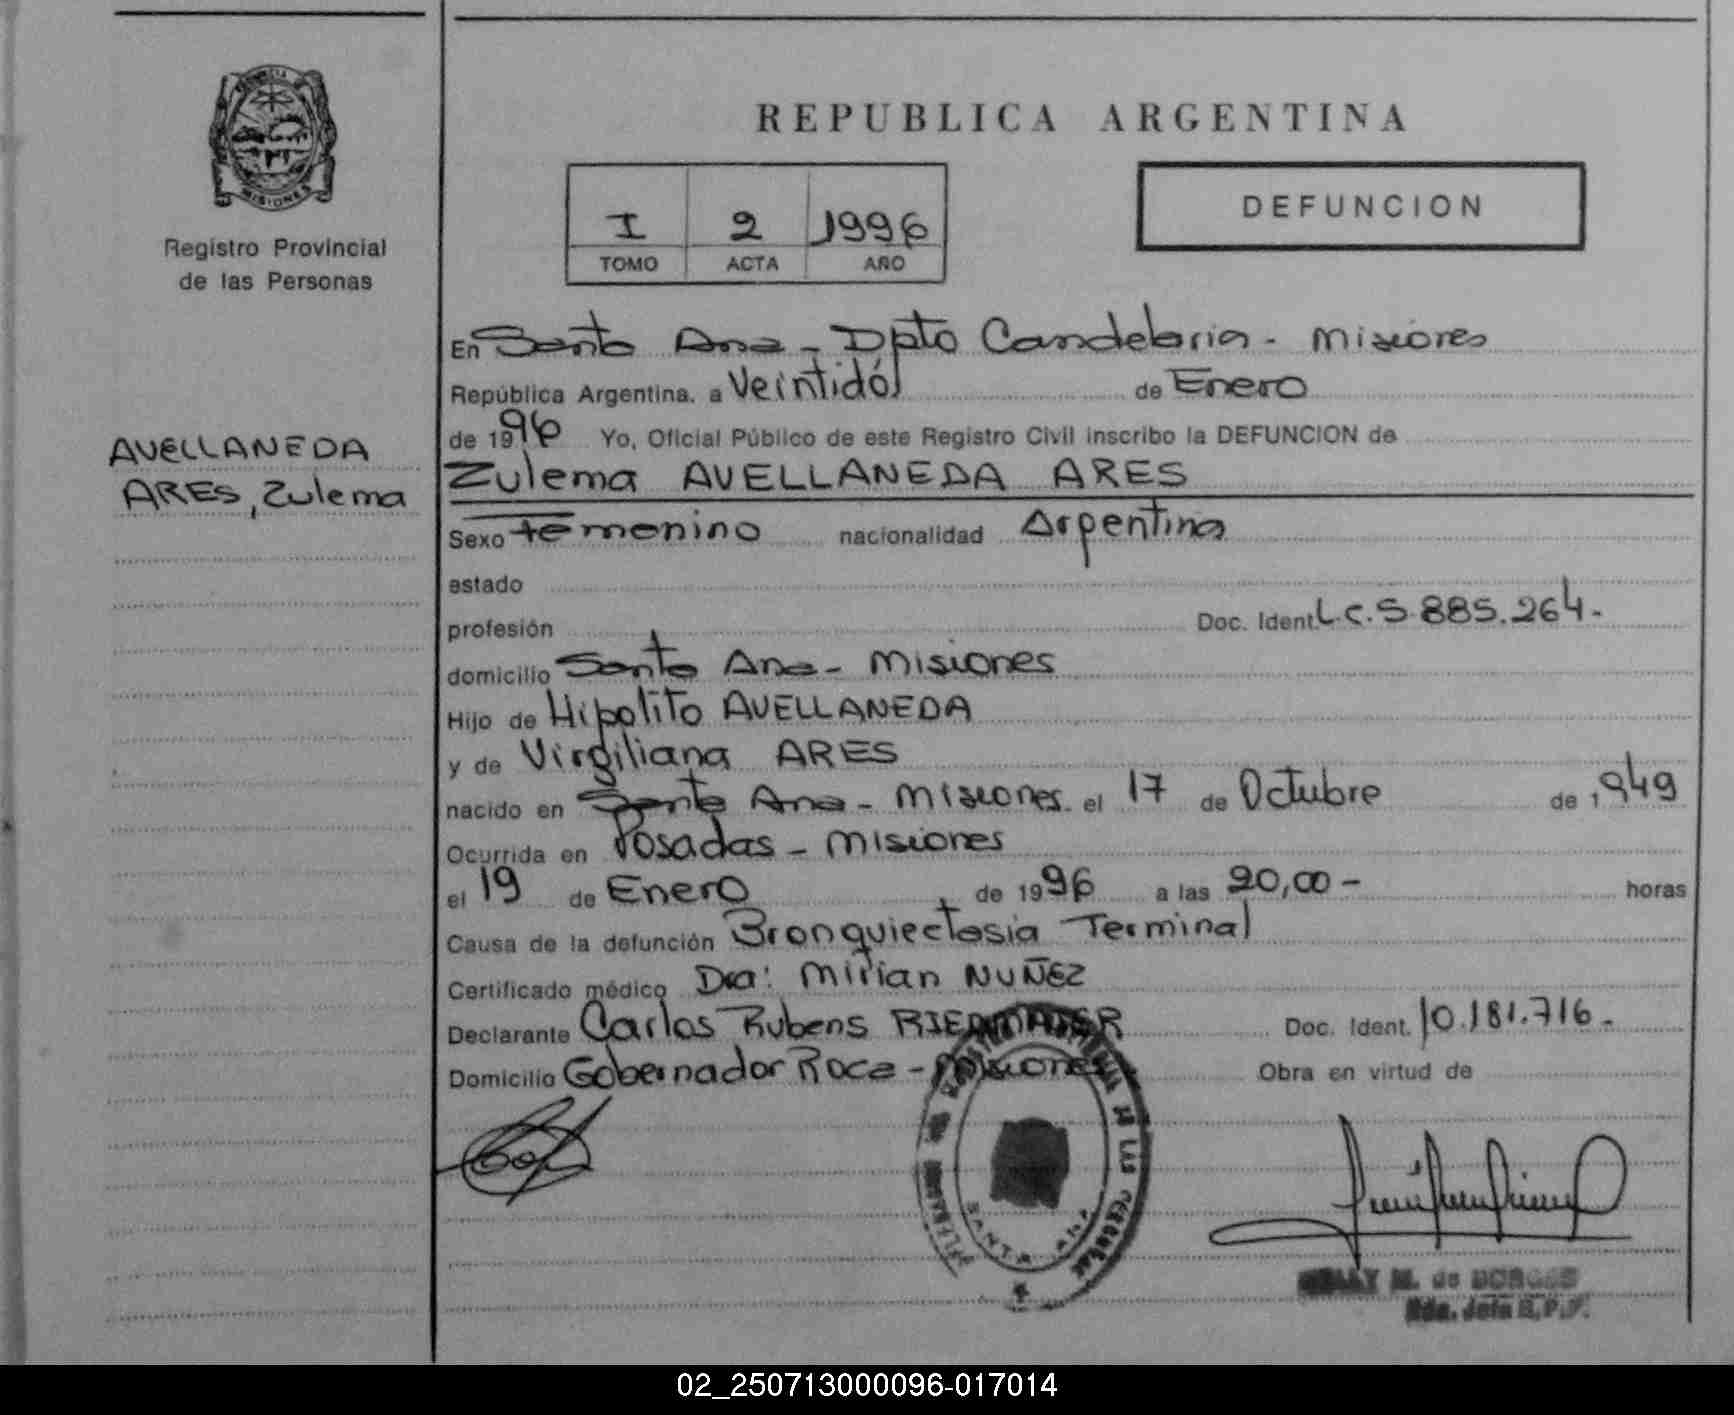 PROVINCIA DE
MISIONES
Registro Provincial
de las Personas
AVELLANEDA
ARES, Zulema
REPUBLICA ARGENTINA
I 2 1996
TOMO ACTA AÑO
DEFUNCION
En Santa Ana - Dpto Candelaria - Misiones
República Argentina, a Veintidós de Enero
de 1996 Yo, Oficial Público de este Registro Civil inscribo la DEFUNCION de
Zulema AVELLANEDA ARES
Sexo Femenino nacionalidad Argentina
estado
profesión Doc. Ident L.C.5.885.264.-
domicilio Santa Ana - Misiones
Hijo de Hipolito AVELLANEDA
y de Virgiliana ARES
nacido en Santa Ana - Misiones el 17 de Octubre de 1949
Ocurrida en Posadas - Misiones
el 19 de Enero de 1996 a las 20,00 - horas
Causa de la defunción Bronquiectasia Terminal
Certificado médico Dra: Mirian NUÑEZ
Declarante Carlos Rubens Doc. Ident. 10.181.716.-
Domicilio Gobernador Roca - Misiones Obra en virtud de
DE LAS PERSONAS
SANTA ANA
NELLY M. de BORGES
02_250713000096-017014